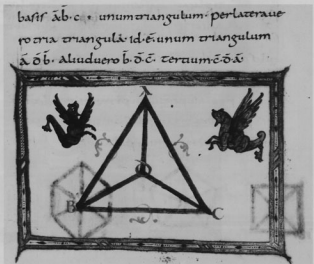 basis āb̄. c. unum triangulum. per latera ve
ro tria triangula. id. ē. unum triangulum
ā ō b̄. aliud vero b̄. ō. c̄. tertium. c̄. ō. ā.
A
O
B
C